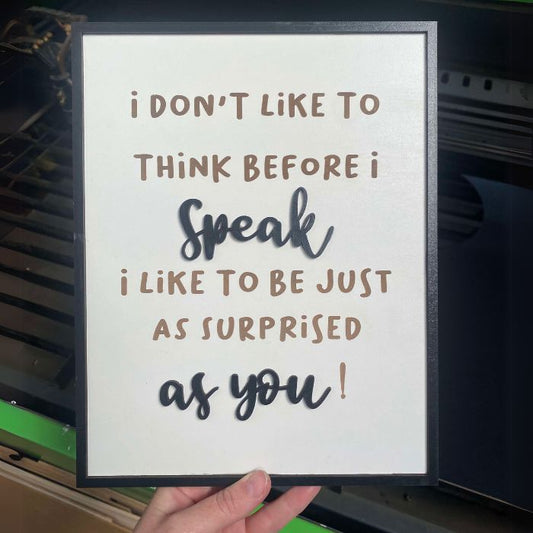 i DON'T LiKE TO
THiNK BEFORE i
Speak
i LiKE TO BE JUST
AS SURPRiSED
as you!